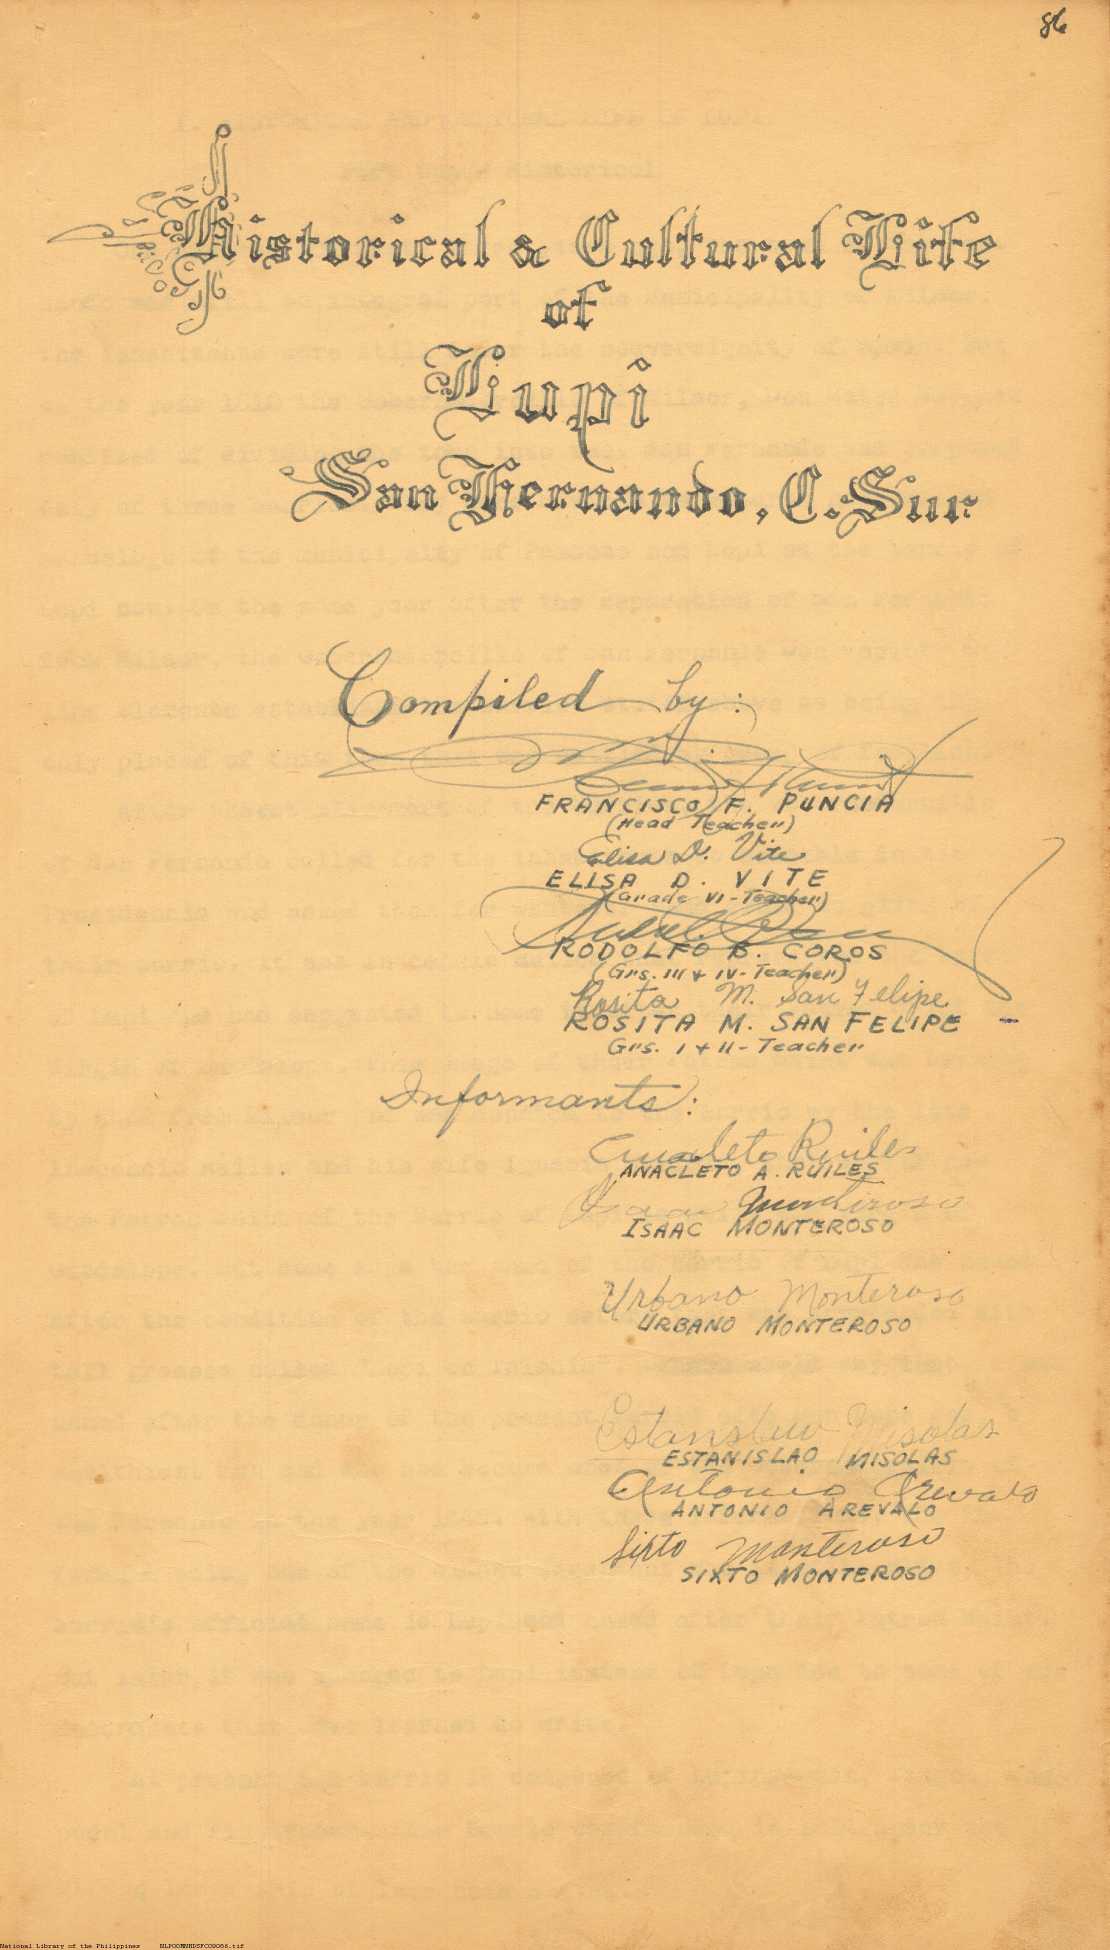 86
Historical & Cultural Life
of
Lupi
San Fernando, C. Sur
Compiled by:
FRANCISCO F. PUNCIA
(Head Teacher)
Elisa D. Vite
ELISA D. VITE
(Grade VI - Teacher)
RODOLFO B. COROS
(Grs. III & IV - Teacher)
Rosita M. San Felipe
ROSITA M. SAN FELIPE
Grs. I & II - Teacher
Informants:
Anacleto Ruiles
ANACLETO A. RUILES
Isaac Monteroso
ISAAC MONTEROSO
Urbano Monteroso
URBANO MONTEROSO
Estanislao Misolas
ESTANISLAO MISOLAS
Antonio Arevalo
ANTONIO AREVALO
Sixto Monteroso
SIXTO MONTEROSO
National Library of the Philippines